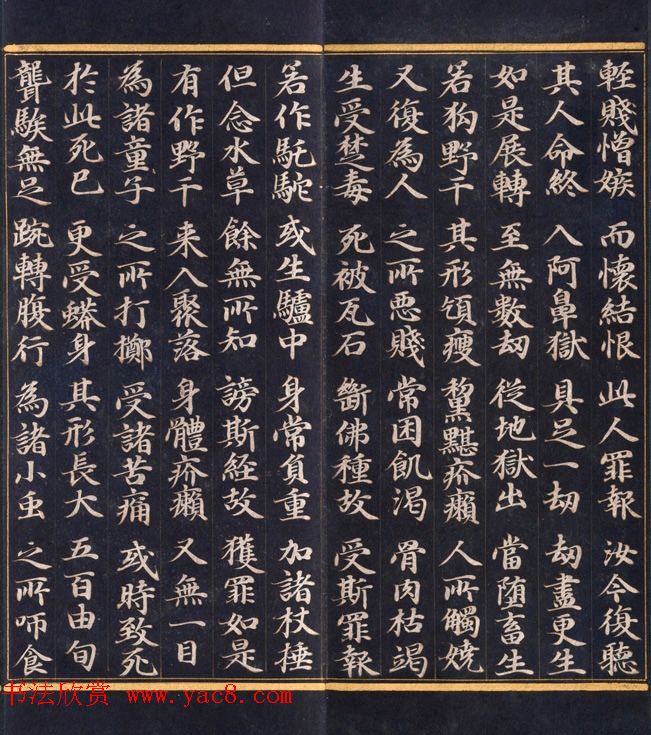 輕賤憎嫉 而懷結恨 此人罪報 汝今復聽
其人命終 入阿鼻獄 具足一劫 劫盡更生
如是展轉 至無數劫 從地獄出 當墮畜生
若狗野干 其形頎瘦 黧黮疥癩 人所觸嬈
又復為人 之所惡賤 常困飢渴 骨肉枯竭
生受楚毒 死被瓦石 斷佛種故 受斯罪報
若作馲駝 或生驢中 身常負重 加諸杖捶
但念水草 餘無所知 謗斯經故 獲罪如是
有作野干 來入聚落 身體疥癩 又無一目
為諸童子 之所打擲 受諸苦痛 或時致死
於此死已 更受蟒身 其形長大 五百由旬
聾騃無足 踠轉腹行 為諸小虫 之所咂食
书法欣赏 www.yac8.com